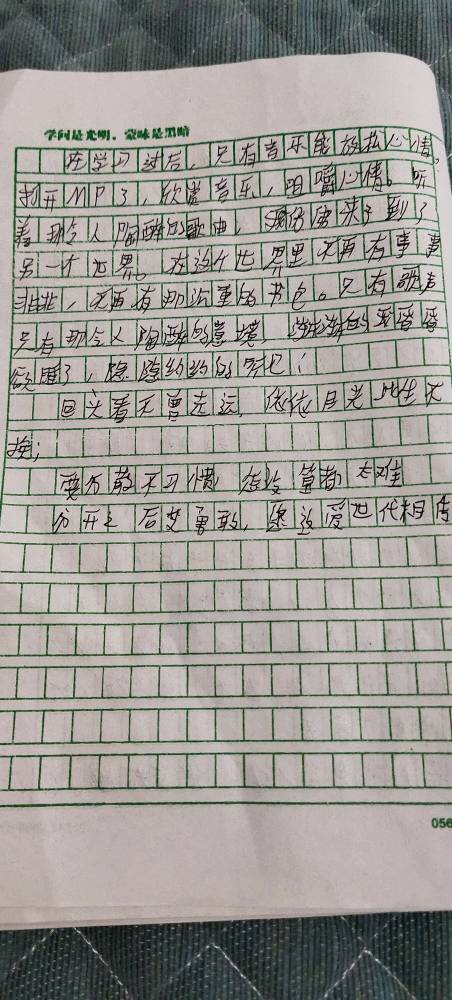 学问是光明，蒙昧是黑暗
在学习过后，只有音乐能放松心情。
打开MP3，欣赏音乐，咀嚼心情。听
着那令人陶醉的歌曲，我仿佛来到了
另一个世界。在这个世界里不再有事事
非非，不再有那沉重的书包。只有歌声
只有那令人陶醉的意境，渐渐的我昏昏
欲睡了，隐隐约约的听见：
回头看不曾走远，依依目光此生不
换；
要分散不习惯 怎么算都太难
分开之后梦勇敢，愿这爱世代相传
056